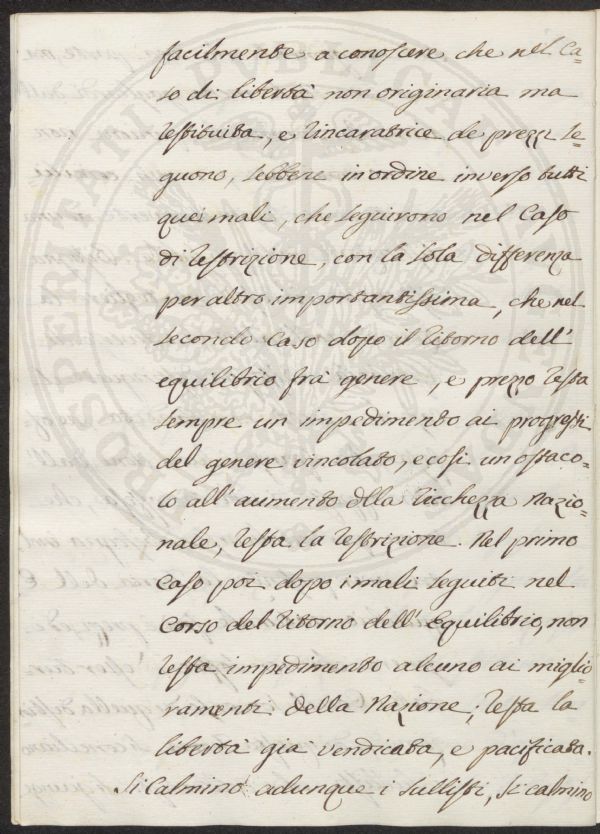 facilmente a conoscere che nel Ca=
so di libertà non originaria ma
restituita, e rincaratrice de prezzi se=
guono, sebbene in ordine inverso tutti
quei mali, che seguirono nel Caso
di restrizione, con la sola differenza
per altro importantissima, che nel
secondo Caso dopo il ritorno dell'
equilibrio frà genere, e prezzo resta
sempre un impedimento ai progressi
del genere vincolato, e così un ostaco=
lo all'aumento dlla ricchezza Nazio=
nale, resta la restrizione. Nel primo
Caso poi dopo i mali seguiti nel
Corso del ritorno dell'Equilibrio, non
resta impedimento alcuno ai miglio=
ramenti della Nazione; resta la
libertà già vendicata, e pacificata.
Si Calmino adunque i sullisti, si calmino